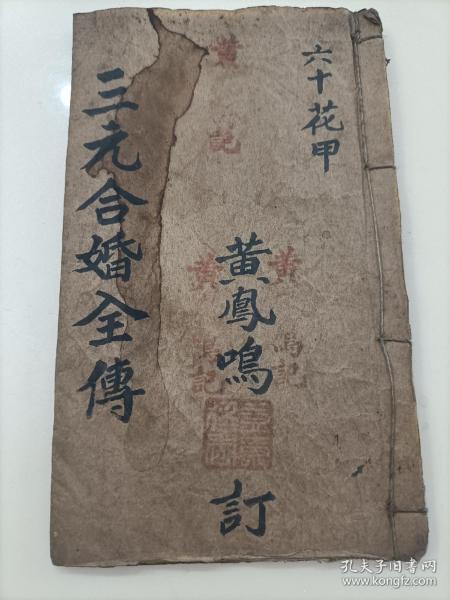 六十花甲
黄鳳鳴
訂
三元合婚全傳
黄
記
黄
鳴記
黄
鳴記
孔夫子旧书网
www.kongfz.com